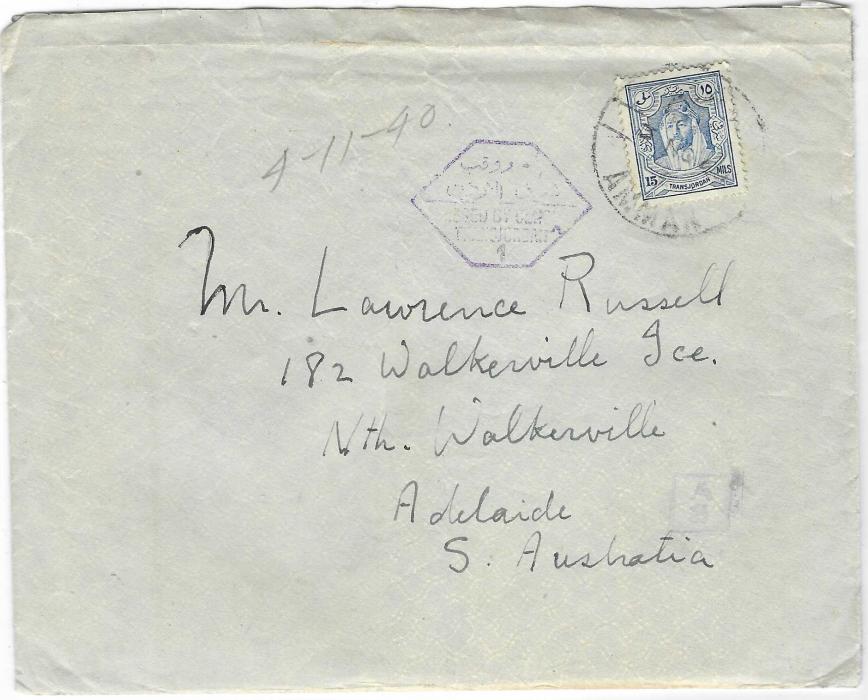 ل م ١٥
15 MILS
TRANSJORDAN
AMMAN
4-11-40.
شرق الاردن
BY
TRANSJORDAN
1
Mr. Lawrence Russell
182 Walkerville Tce.
Nth. Walkerville
Adelaide
S. Australia